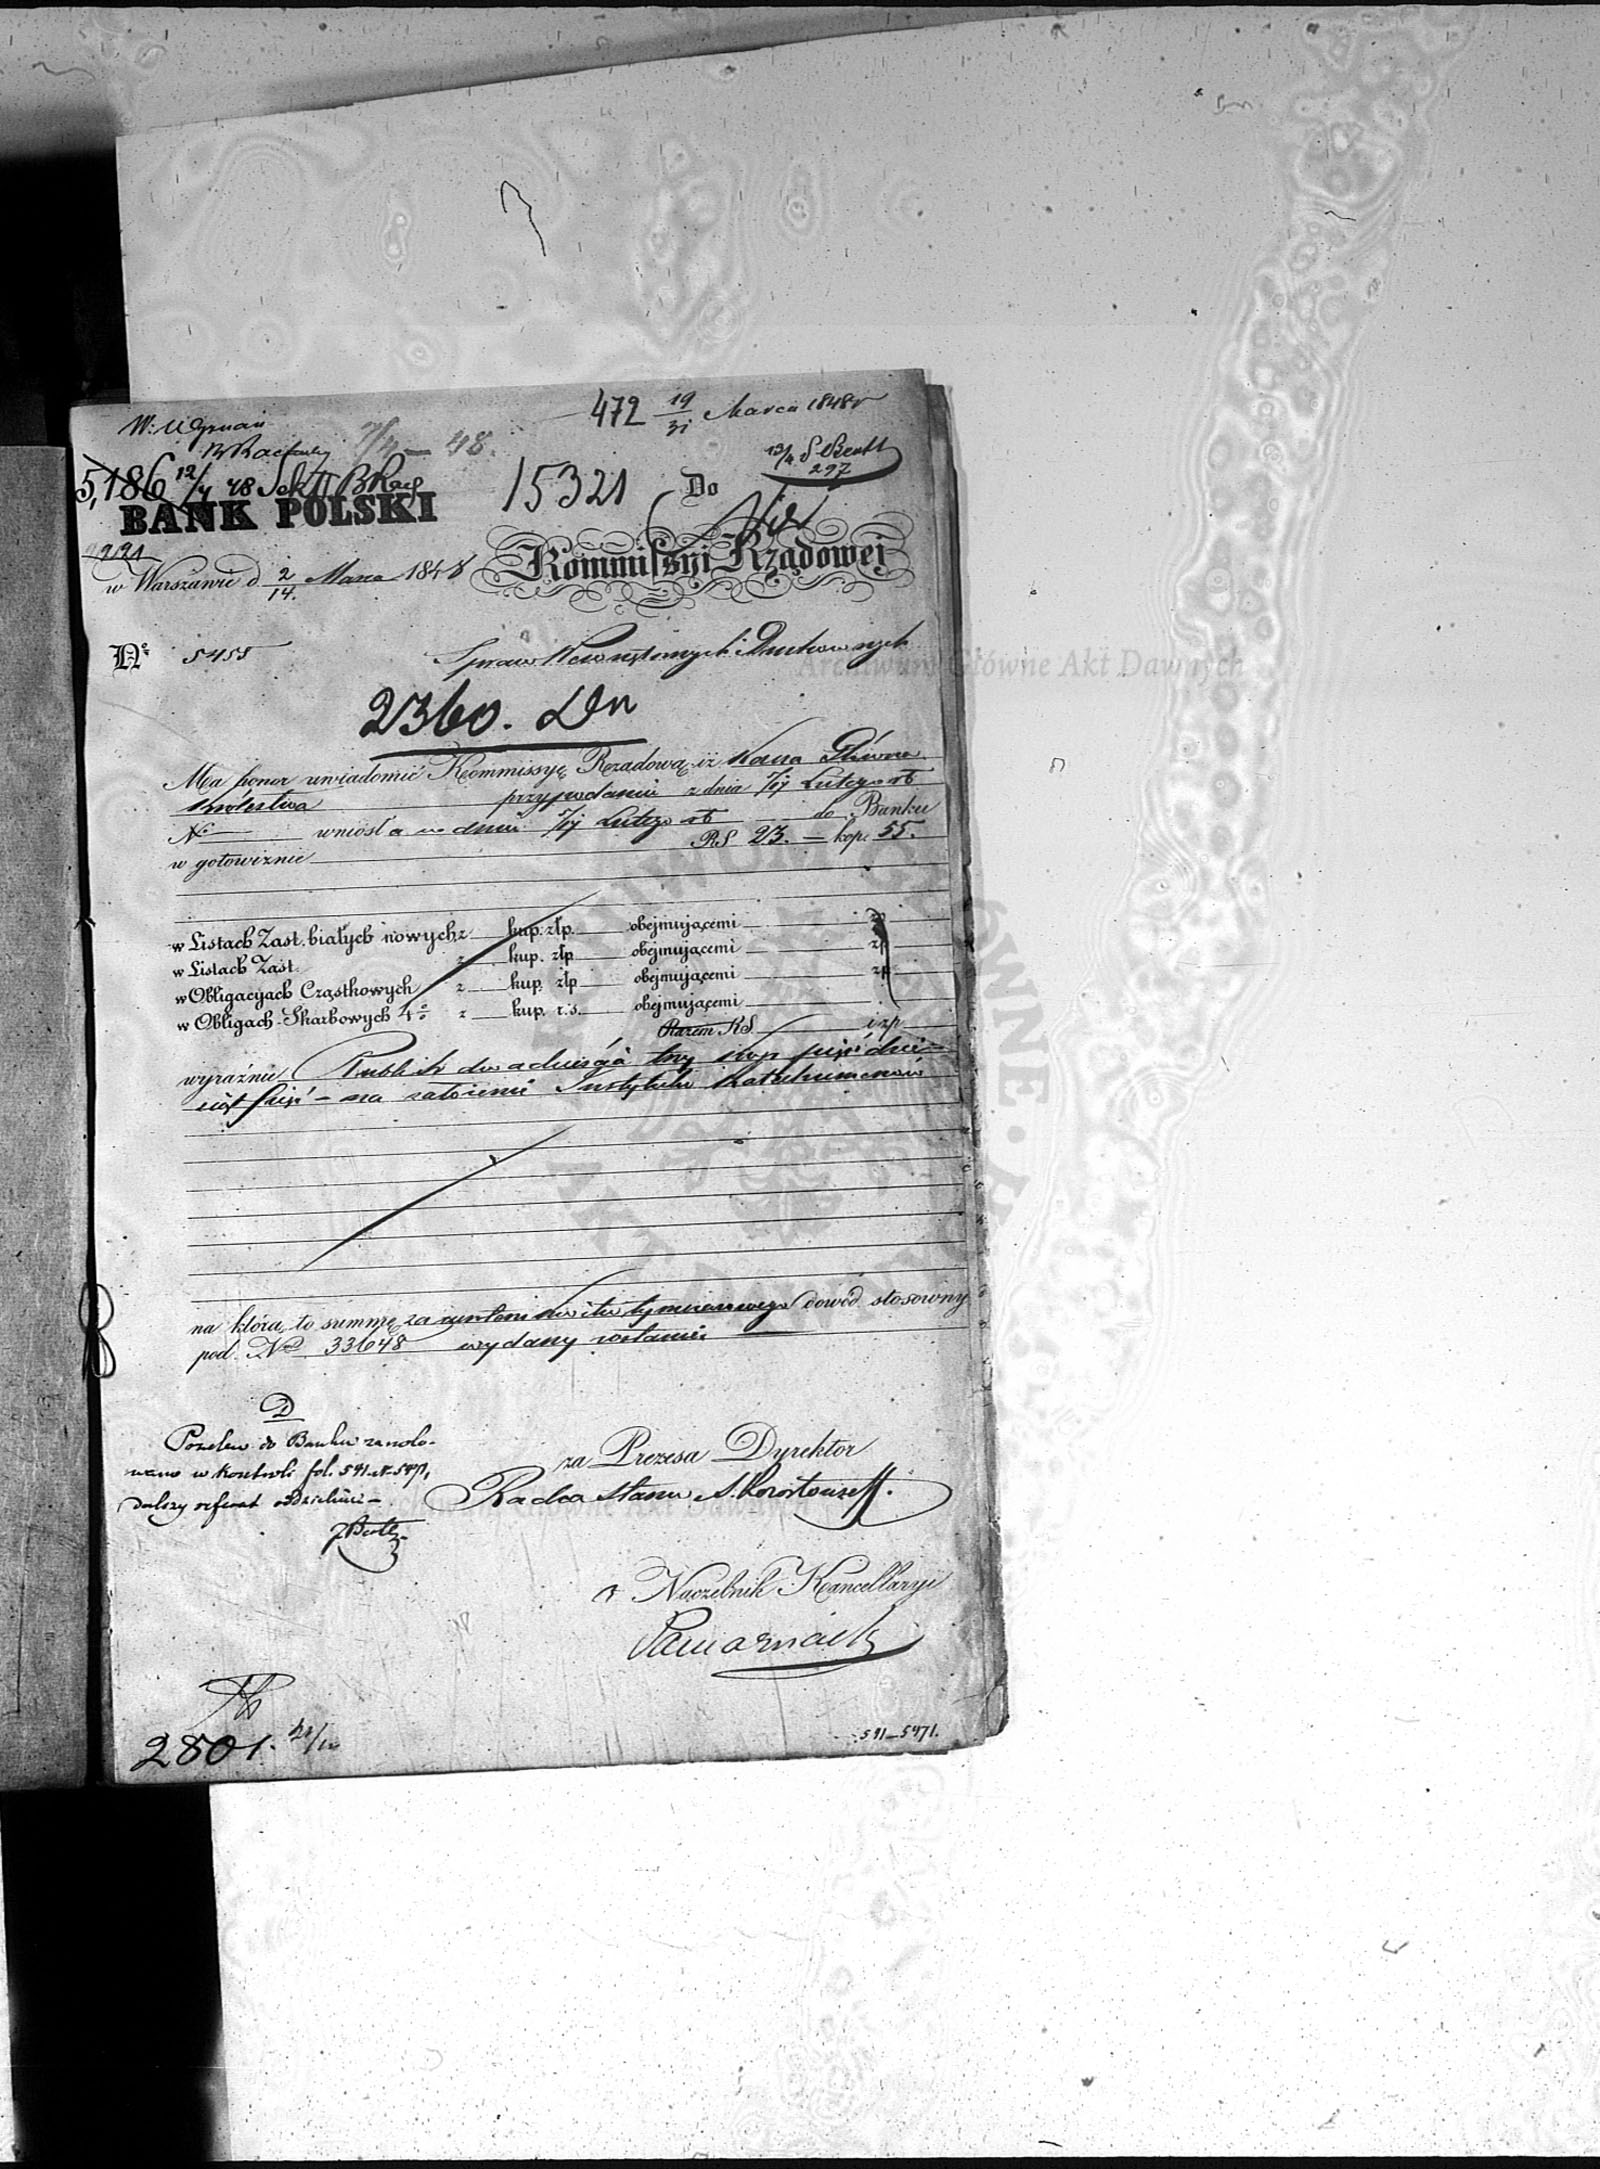 472 19/31 Marca 1848 r
7/4 — 48.
13/4 S Benth
297
5,186 12/4 48 Sekt II
15321
Do
BANK POLSKI
w Warszawie d. 2/14. Marca 1848
Kommissyi Rządowej
Nº 5455
Spraw Wewnętrznych i Duchownych
2360. Dn
Ma honor uwiadomić Kommissyę Rządową iż Kassa Główna
Królestwa przy podaniu z dnia Lutego rb
No wniosła w dniu Lutego rb do Banku
w gotowiznie RS 23. — kop. 55.
w Listach Zast. białych nowych z kup. złp. obejmującemi zp
w Listach Zast. z kup. złp. obejmującemi zp
w Obligacyach Cząstkowych z kup. złp obejmującemi zp
w Obligach Skarbowych 4% z kup. r.s. obejmującemi
Razem RS. i zp
wyraźnie Rubli sr dwadzieścia trzy kop pięćdzie-
siąt pięć – na założenie Instytutu Katechumenów
na którą to summę za zwrotem kwitu tymczasowego dowód stosowny
pod Nrem 33648 wydany zostanie
D
do Banku zanoto-
wano w kontroli fol. 541 N. 5471,
dalszy referat oddzielnie –
za Prezesa Dyrektor
Radca Stanu
Naczelnik Kancellaryi
2801.
541–5471.
Archiwum Główne Akt Dawnych